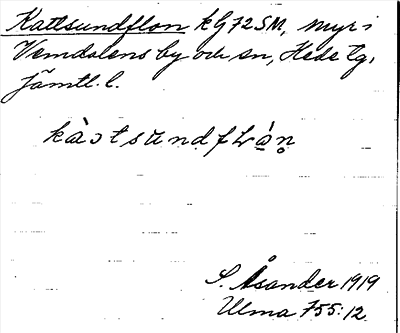 Kattsundflon kG72SM, myr i
Vemdalens by och sn, Hede tg,
Jämtl. l.
S. Åsander 1919
Ulma 755:12